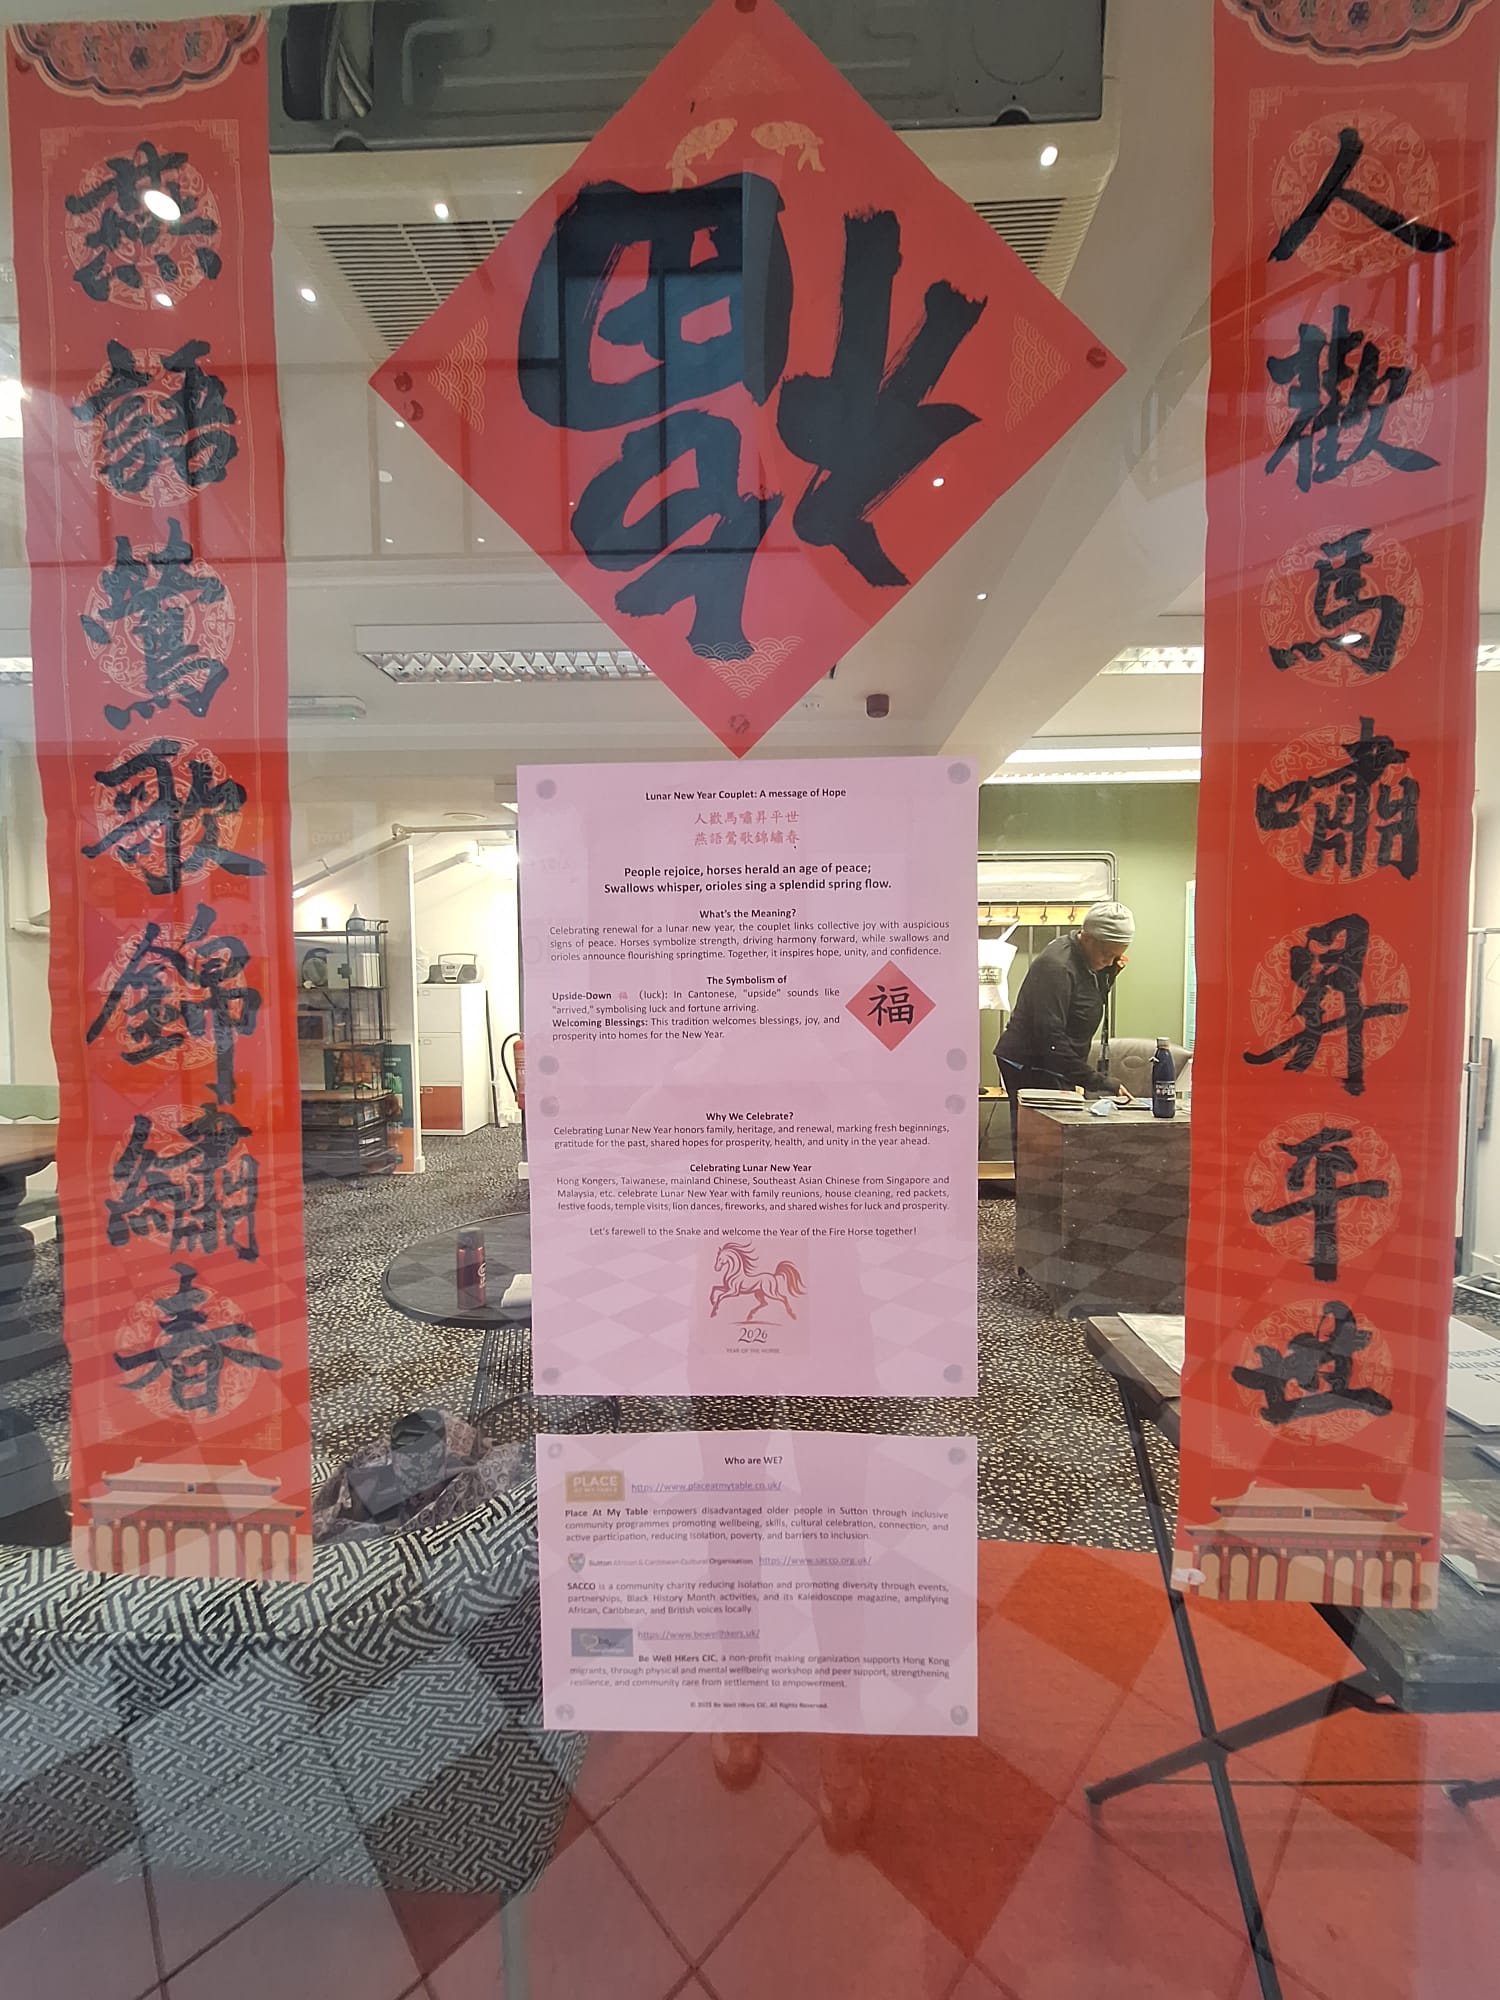 人歡馬嘯昇平世
福
燕語鶯歌錦繡春
Lunar New Year Couplet: A message of Hope
人歡馬嘯昇平世
燕語鶯歌錦繡春
People rejoice, horses herald an age of peace;
Swallows whisper, orioles sing a splendid spring flow.
What's the Meaning?
Celebrating renewal for a lunar new year, the couplet links collective joy with auspicious
signs of peace. Horses symbolize strength, driving harmony forward, while swallows and
orioles announce flourishing springtime. Together, it inspires hope, unity, and confidence.
The Symbolism of
Upside-Down 福 (luck): In Cantonese, "upside" sounds like
"arrived," symbolising luck and fortune arriving.
Welcoming Blessings: This tradition welcomes blessings, joy, and
prosperity into homes for the New Year.
福
Why We Celebrate?
Celebrating Lunar New Year honors family, heritage, and renewal, marking fresh beginnings,
gratitude for the past, shared hopes for prosperity, health, and unity in the year ahead.
Celebrating Lunar New Year
Hong Kongers, Taiwanese, mainland Chinese, Southeast Asian Chinese from Singapore and
Malaysia, etc. celebrate Lunar New Year with family reunions, house cleaning, red packets,
festive foods, temple visits, lion dances, fireworks, and shared wishes for luck and prosperity.
Let's farewell to the Snake and welcome the Year of the Fire Horse together!
2026
YEAR OF THE HORSE
Who are WE?
PLACE
AT MY TABLE
https://www.placeatmytable.co.uk/
Place At My Table empowers disadvantaged older people in Sutton through inclusive
community programmes promoting wellbeing, skills, cultural celebration, connection, and
active participation, reducing isolation, poverty, and barriers to inclusion.
Sutton African & Caribbean Cultural Organisation https://www.sacco.org.uk/
SACCO is a community charity reducing isolation and promoting diversity through events,
partnerships, Black History Month activities, and its Kaleidoscope magazine, amplifying
African, Caribbean, and British voices locally.
be
https://www.bewellhkers.uk/
Be Well HKers CIC, a non-profit making organization supports Hong Kong
migrants, through physical and mental wellbeing workshop and peer support, strengthening
resilience, and community care from settlement to empowerment.
© 2025 Be Well HKers CIC. All Rights Reserved.